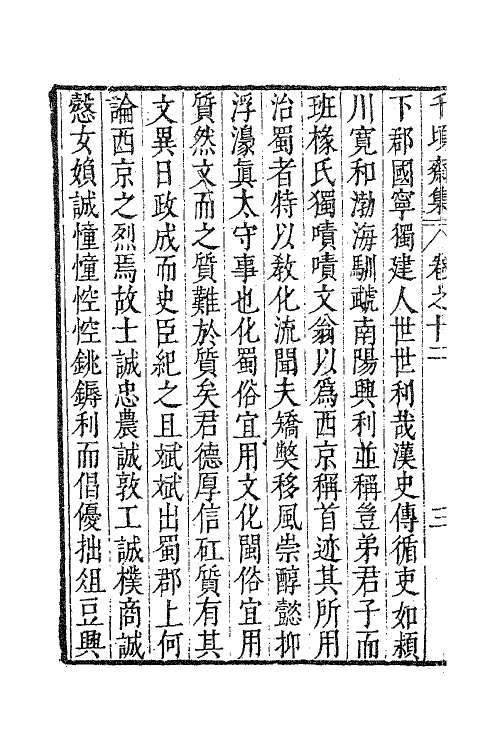 千頃齋集 卷之十二 三
下郡國寧獨建人世世利哉漢史傳循吏如潁
川寬和渤海馴虣南陽興利並稱豈弟君子而
班椽氏獨嘖嘖文翁以爲西京稱首迹其所用
治蜀者特以敎化流聞夫矯獘移風崇醇懿抑
浮瀠眞太守事也化蜀俗宜用文化閩俗宜用
質然文而之質難於質矣君德厚信矼質有其
文異日政成而史臣紀之且斌斌出蜀郡上何
論西京之烈焉故士誠忠農誠敦工誠樸商誠
慤女娊誠憧憧悾悾銚鎒利而倡優拙俎豆興